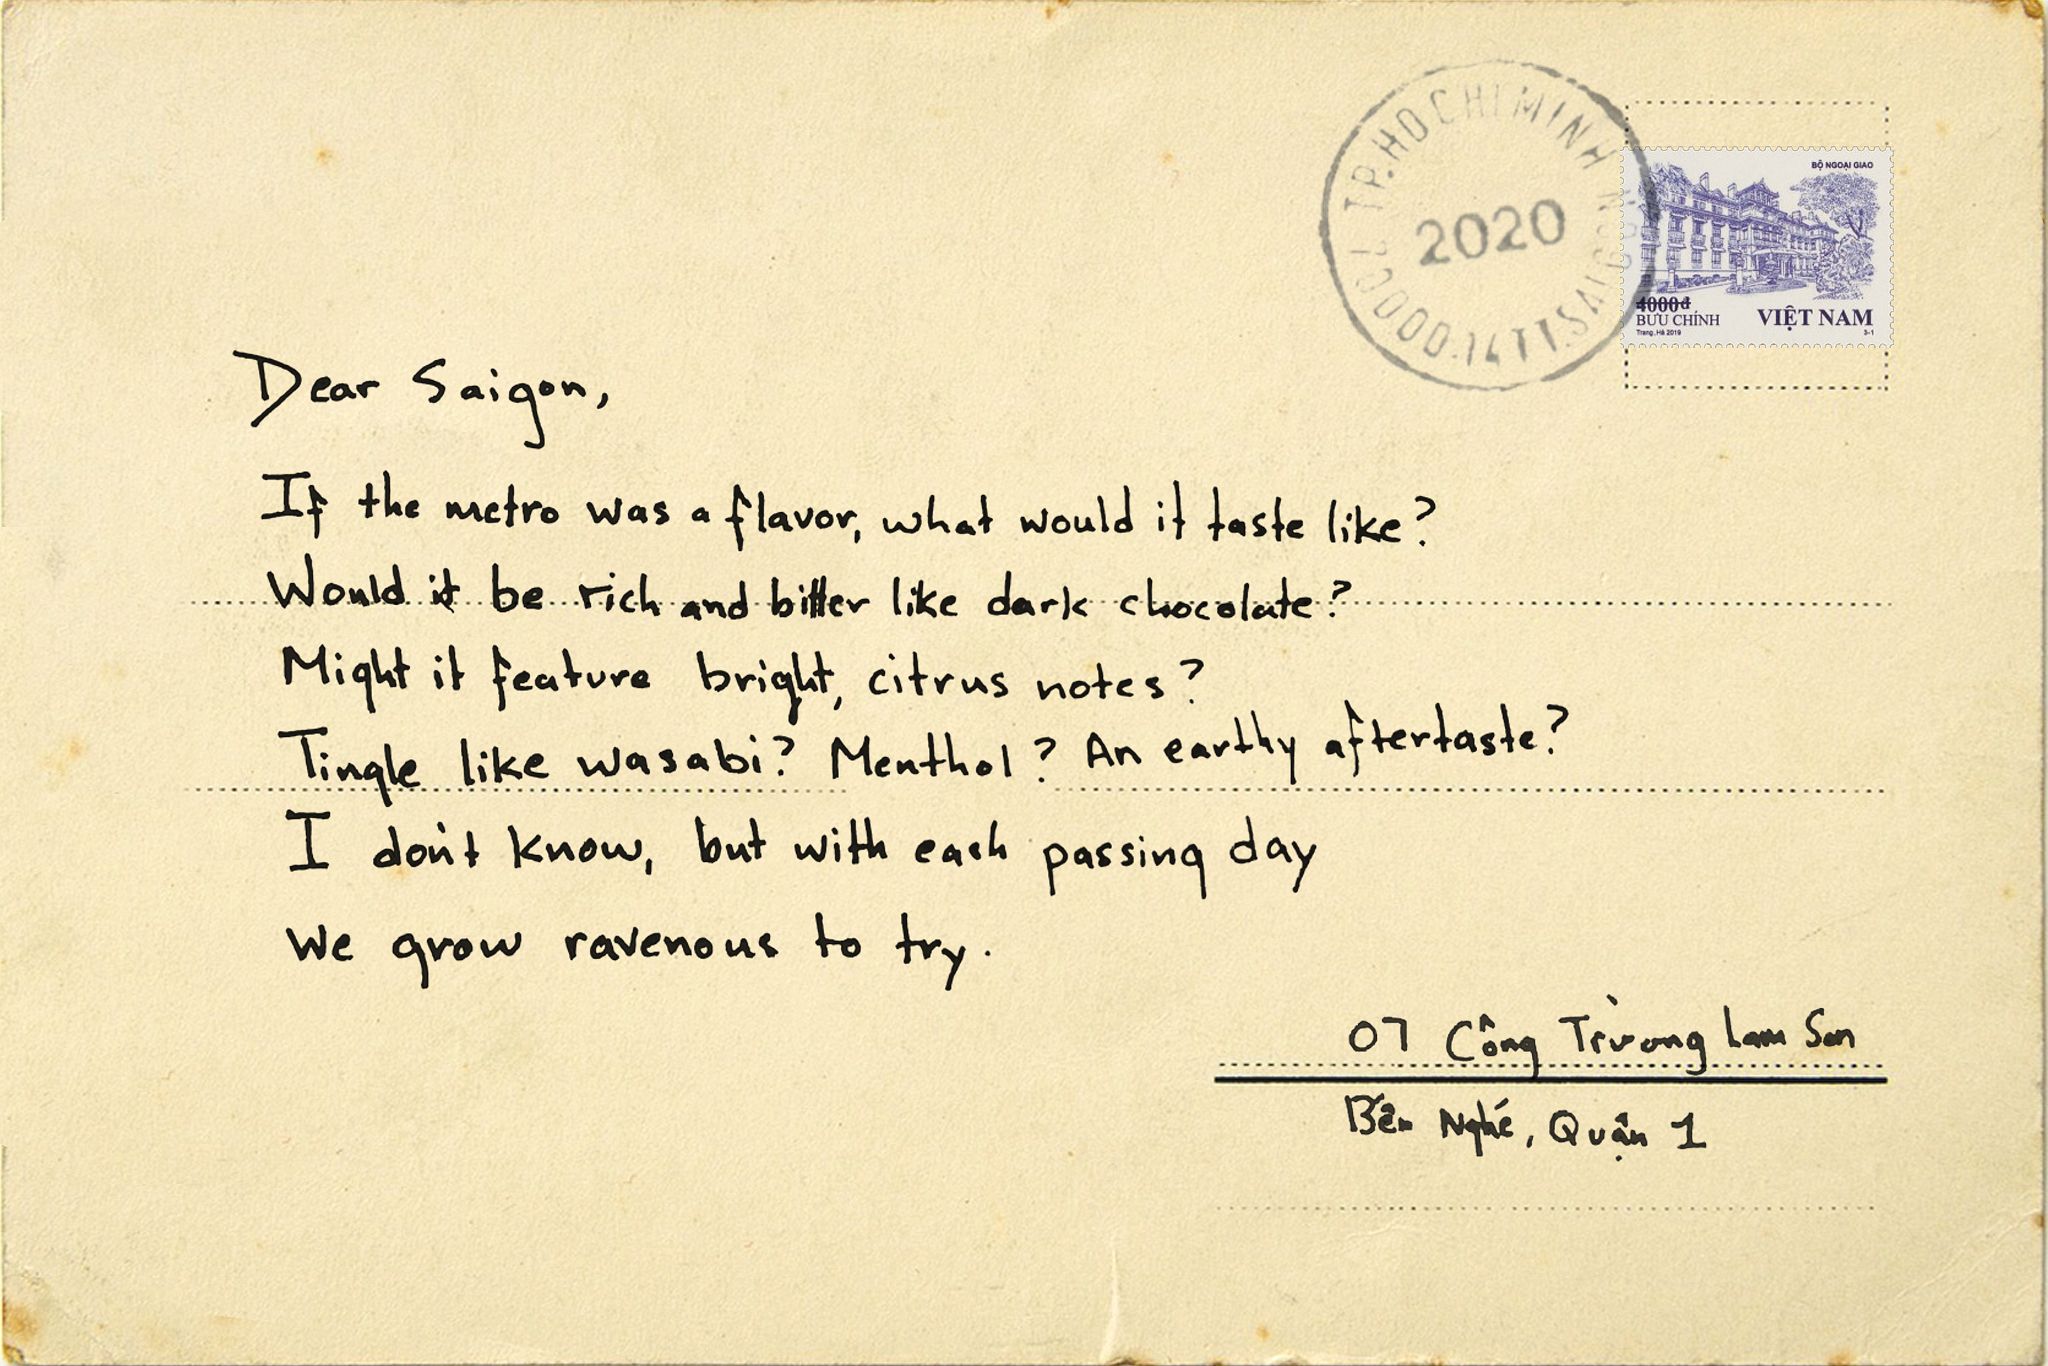 TP. HO CHI MINH
2020
BỘ NGOẠI GIAO
4000đ
BƯU CHÍNH
VIỆT NAM
Trang, Hà 2019
3-1
Dear Saigon,
If the metro was a flavor, what would it taste like?
Would it be rich and bitter like dark chocolate?
Might it feature bright, citrus notes?
Tingle like wasabi? Menthol? An earthy aftertaste?
I don't know, but with each passing day
We grow ravenous to try.
07 Công Trường Lam Son
Bến Nghé, Quận 1